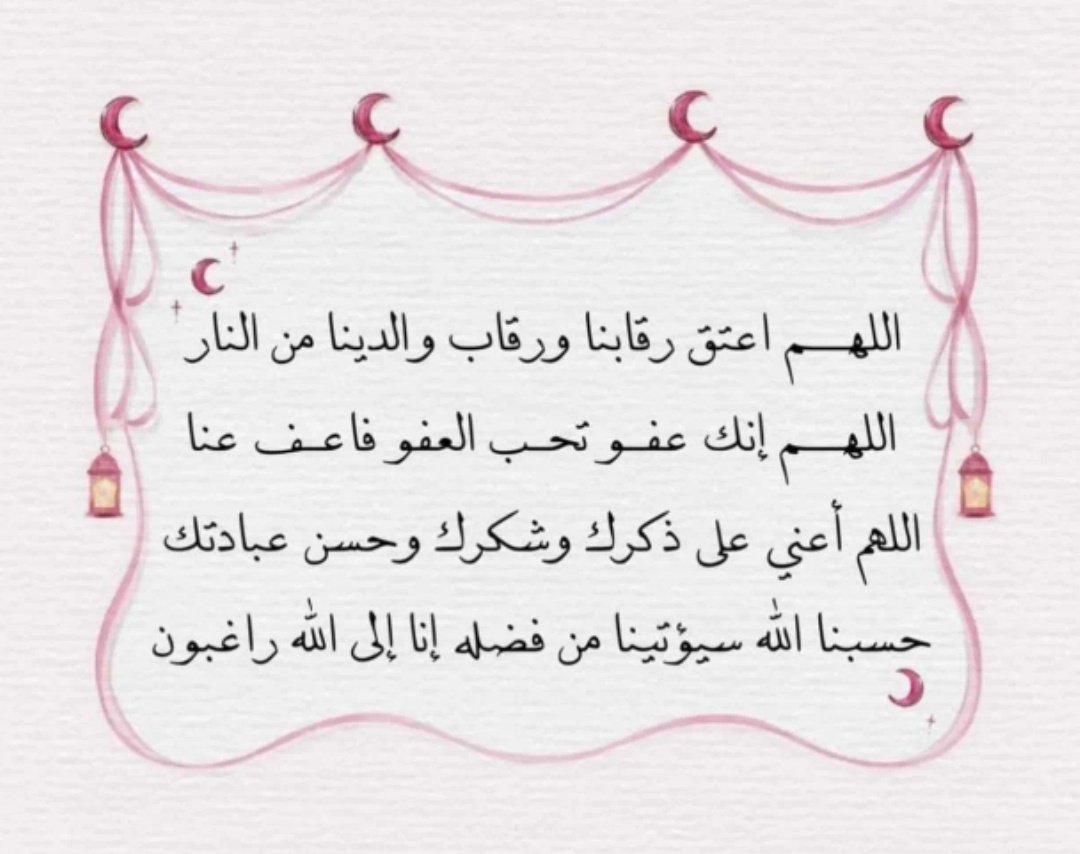 اللهـــم اعتق رقابنا ورقاب والدينا من النار
اللهـــم إنك عفــو تحــب العفو فاعــف عنا
اللهم أعني على ذكرك وشكرك وحسن عبادتك
حسبنا الله سيؤتينا من فضله إنا إلى الله راغبون